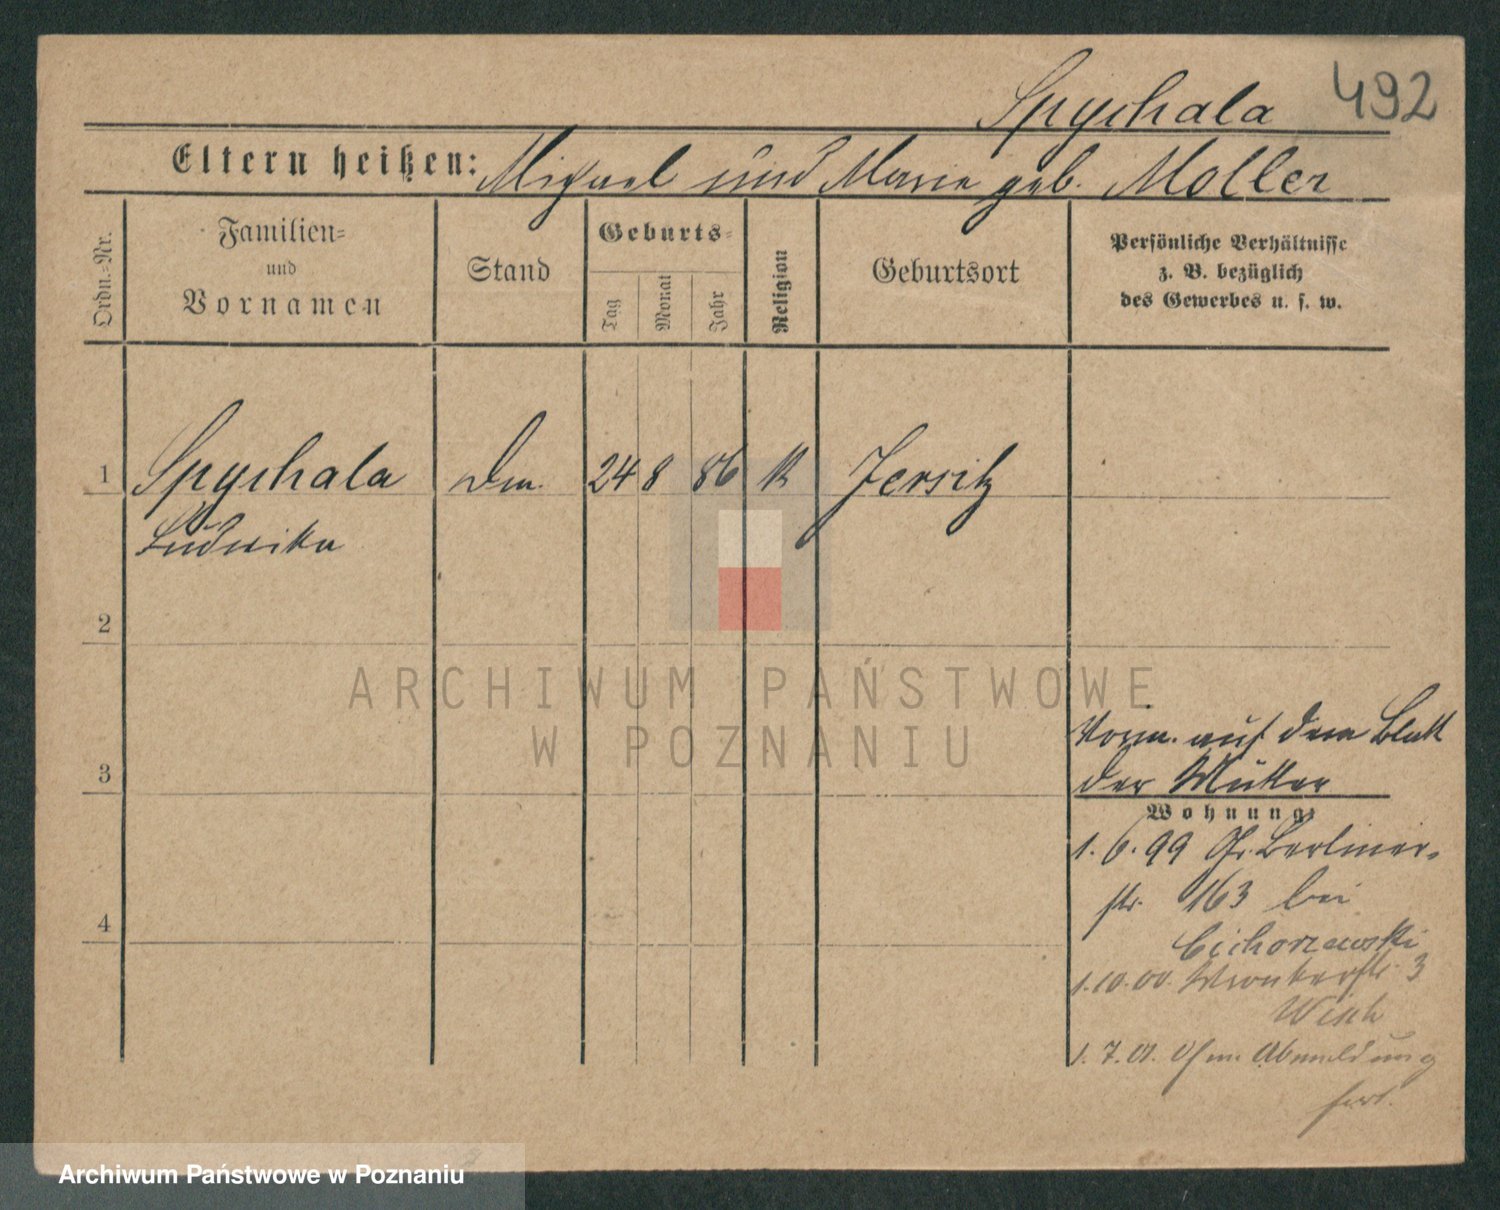 Spychala 492
Eltern heißen: Michael und Marie geb. Moller
Ordn.=Nr.
Familien=
und
Vornamen
Stand
Geburts=
Tag
Monat
Jahr
Religion
Geburtsort
Persönliche Verhältnisse
z. B. bezüglich
des Gewerbes u. s. w.
1 Spychala 24 8 86 K Jersitz
Ludwika
2
ARCHIWUM PAŃSTWOWE
W POZNANIU
3
Vorm. auf dem Blatt
der Mutter
Wohnung:
1.6.99 Gr. Berliner-
str. 163 bei
Cichorzewski
4
1.10.00. 3
1.7.01. Ohne Abmeldung
fort.
Archiwum Państwowe w Poznaniu